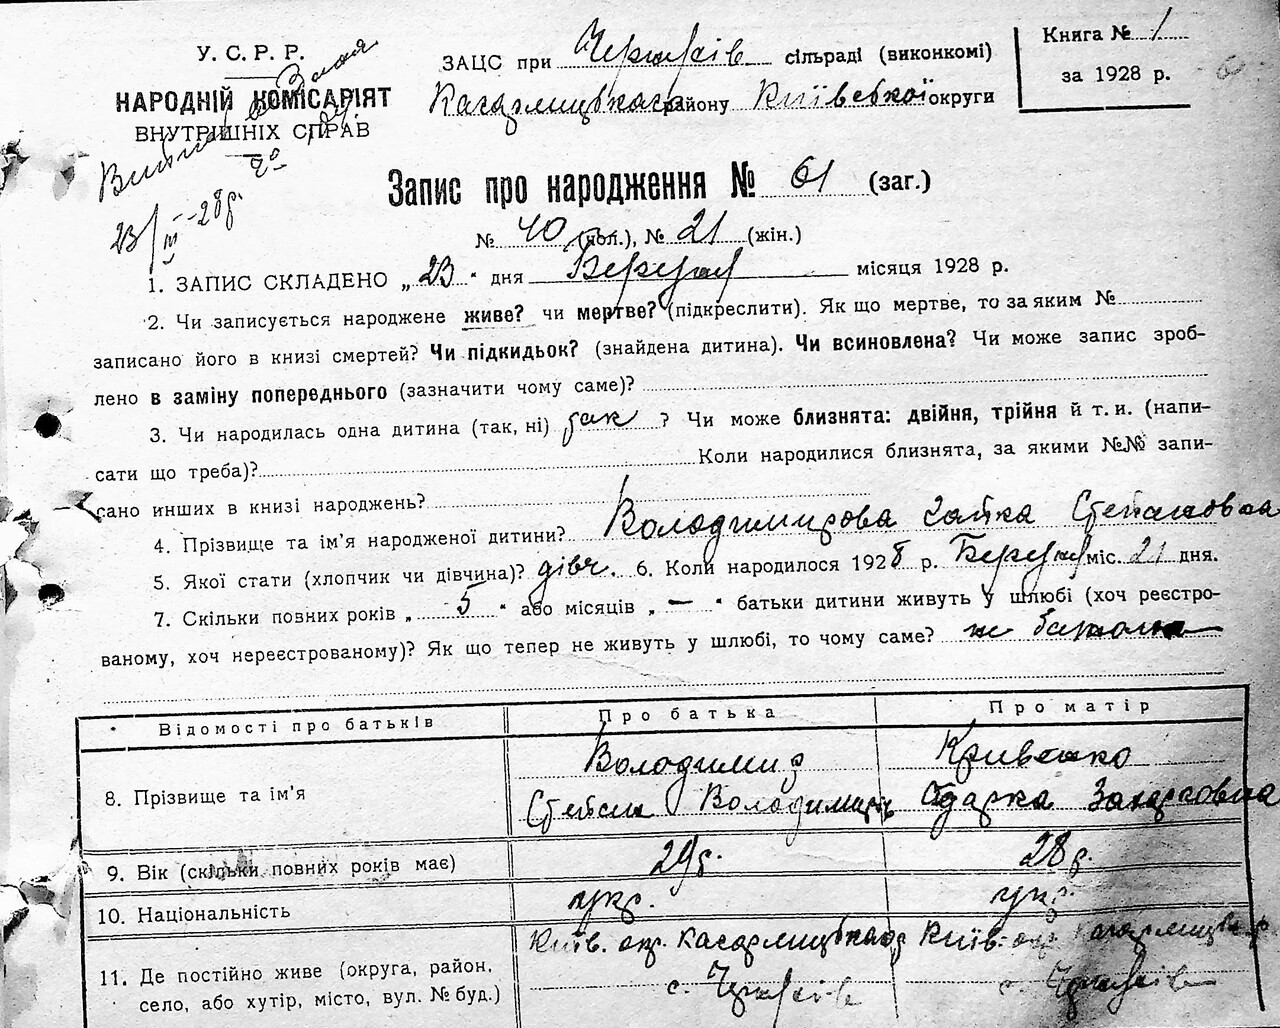 У. С. Р. Р.
НАРОДНІЙ КОМІСАРІЯТ
ВНУТРІШНІХ СПРАВ
23/III-28 р.
ЗАЦС при сільраді (виконкомі)
Кагарлицького району Київської округи
Книга № 1
за 1928 р.
Запис про народження № 61 (заг.)
№ 40 (чол.), № 21 (жін.)
1. ЗАПИС СКЛАДЕНО „ 23 " дня Березня місяця 1928 р.
2. Чи записується народжене живе? чи мертве? (підкреслити). Як що мертве, то за яким №
записано його в книзі смертей? Чи підкидьок? (знайдена дитина). Чи всиновлена? Чи може запис зроб-
лено в заміну попереднього (зазначити чому саме)?
3. Чи народилась одна дитина (так, ні) так ? Чи може близнята: двійня, трійня й т. и. (напи-
сати що треба)? Коли народилися близнята, за якими №№ запи-
сано инших в книзі народжень?
4. Прізвище та ім'я народженої дитини? Володимирова Степановна
5. Якої стати (хлопчик чи дівчина)? дівч. 6. Коли народилося 1928 р. Березня міс. 21 дня.
7. Скільки повних років „ 5 " або місяців „ — " батьки дитини живуть у шлюбі (хоч реєстро-
ваному, хоч нереєстрованому)? Як що тепер не живуть у шлюбі, то чому саме?
Відомості про батьків Про батька Про матір
8. Прізвище та ім'я Володимир Кривенко
Степан Володимир Одарка Захаровна
9. Вік (скільки повних років має) 29 р. 28 р.
10. Національність укр. укр.
11. Де постійно живе (округа, район, Київ. окр. Кагарлицького р Київ. окр. Кагарлицьк. р
село, або хутір, місто, вул. № буд.) с. с.